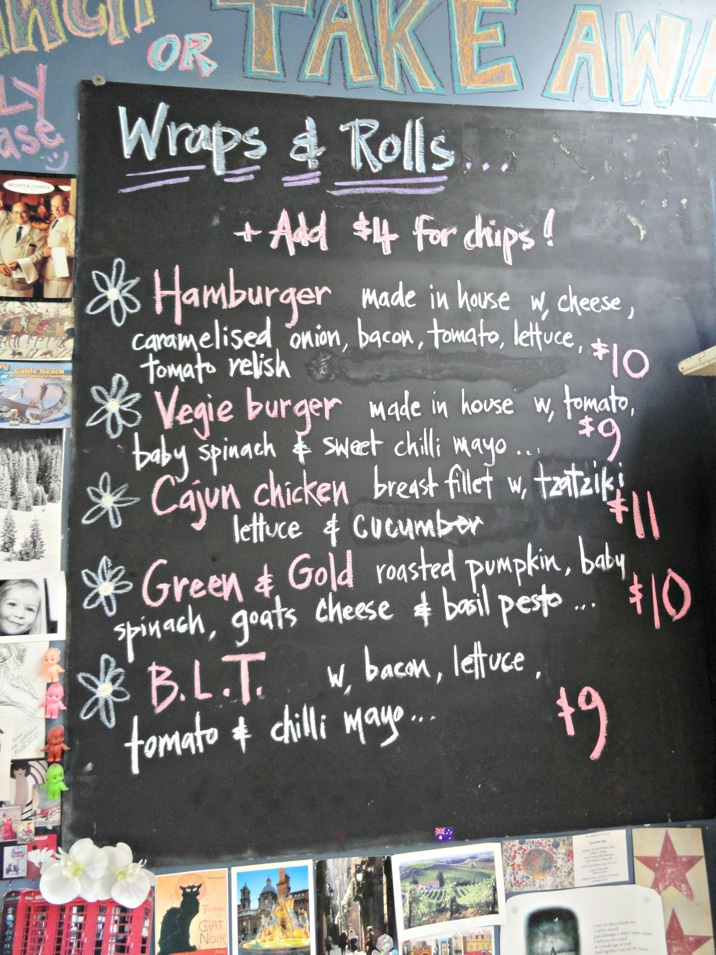 OR TAKE AWA
LY
ase
Wraps & Rolls...
+ Add $4 for chips!
Hamburger made in house w, cheese,
caramelised onion, bacon, tomato, lettuce, $10
tomato relish
Vegie burger made in house w, tomato,
baby spinach & sweet chilli mayo... $9
Cajun chicken breast fillet w, tzatziki
lettuce & cucumber $11
Green & Gold roasted pumpkin, baby
spinach, goats cheese & basil pesto... $10
B.L.T. w, bacon, lettuce,
tomato & chilli mayo... $9
Cable Beach
CHAT
NOIR